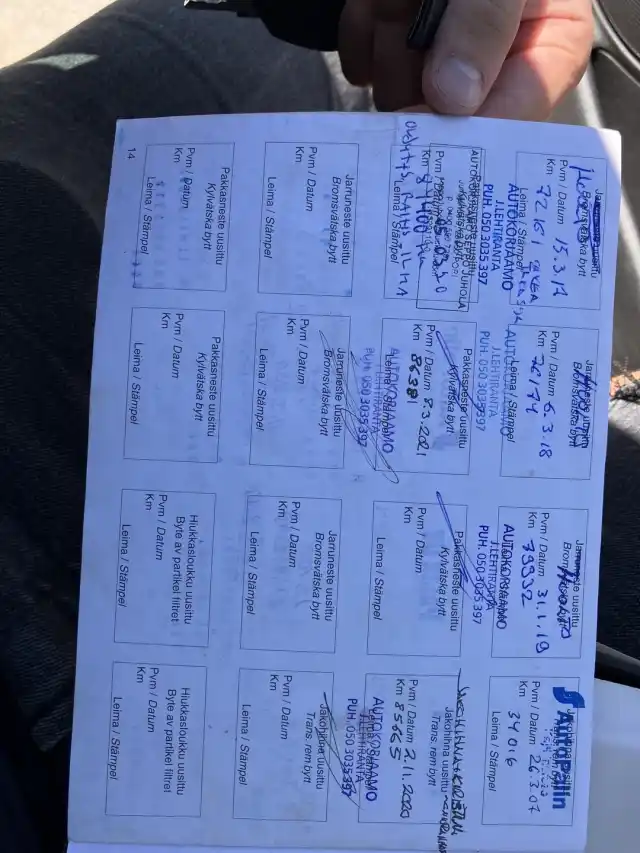 Jarruneste uusittu
Bromsvätska bytt
Pvm / Datum 15.3.17
Km 72151
Leima / Stämpel
AUTOKORJAAMO
J.LEHTIRANTA
PUH. 050 3035 397
Jarruneste uusittu
Bromsvätska bytt
Pvm / Datum 6.3.18
Km 76174
Leima / Stämpel
AUTOKORJAAMO
J.LEHTIRANTA
PUH. 050 3035397
Jarruneste uusittu
Bromsvätska bytt
HUOLTO
Pvm / Datum 31.1.19
Km 79932
AUTOKORJAAMO
J.LEHTIRANTA
PUH. 050 3035 397
AutoPalin
Pvm / Datum 26.3.07
Km 34016
Leima / Stämpel
AUTOKORJAAMO
JUHOLA
Pvm
Km
Leima / Stämpel
Pakkasneste uusittu
Kylvätska bytt
Pvm / Datum 8.3.2021
Km 86381
Leima / Stämpel
AUTOKORJAAMO
J.LEHTIRANTA
PUH. 050 3035 397
Pakkasneste uusittu
Kylvätska bytt
Pvm / Datum
Km
Leima / Stämpel
Jakohihna uusittu
Trans.rem bytt
Pvm / Datum 2.11.2020
Km 85665
AUTOKORJAAMO
J.LEHTIRANTA
PUH. 050 3035 397
Jarruneste uusittu
Bromsvätska bytt
Pvm / Datum
Km
Leima / Stämpel
Jarruneste uusittu
Bromsvätska bytt
Pvm / Datum
Km
Leima / Stämpel
Jarruneste uusittu
Bromsvätska bytt
Pvm / Datum
Km
Leima / Stämpel
Jakohihna uusittu
Trans.rem bytt
Pvm / Datum
Km
Leima / Stämpel
Pakkasneste uusittu
Kylvätska bytt
Pvm / Datum
Km
Leima / Stämpel
Pakkasneste uusittu
Kylvätska bytt
Pvm / Datum
Km
Leima / Stämpel
Hiukkasloukku uusittu
Byte av partikel filtret
Pvm / Datum
Km
Leima / Stämpel
Hiukkasloukku uusittu
Byte av partikel filtret
Pvm / Datum
Km
Leima / Stämpel
14